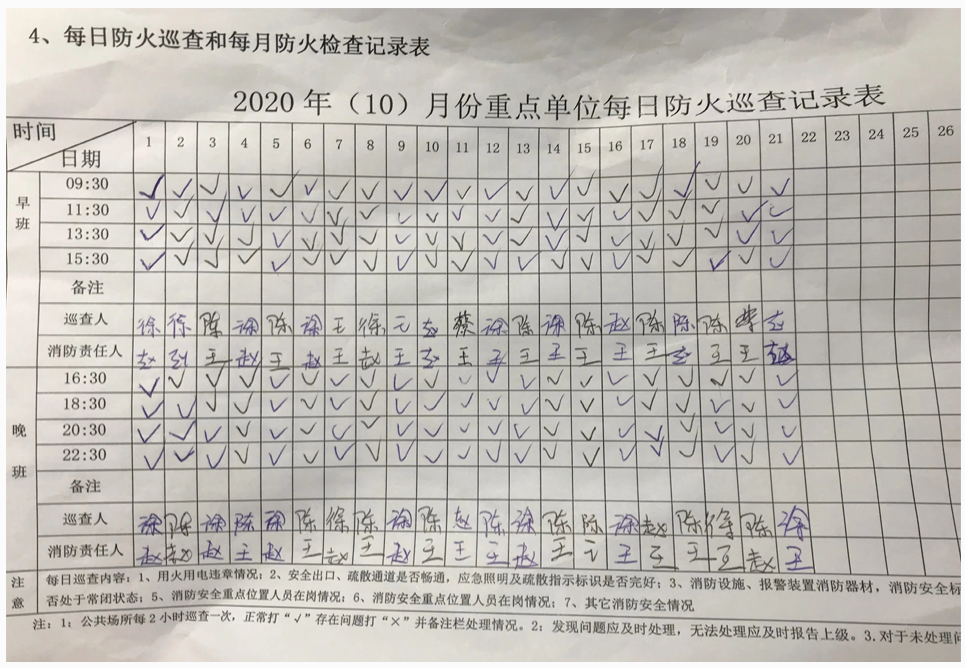 4、每日防火巡查和每月防火检查记录表
2020 年（10）月份重点单位每日防火巡查记录表
时间 日期 1 2 3 4 5 6 7 8 9 10 11 12 13 14 15 16 17 18 19 20 21 22 23 24 25 26
早班
09:30 ✓ ✓ ✓ ✓ ✓ ✓ ✓ ✓ ✓ ✓ ✓ ✓ ✓ ✓ ✓ ✓ ✓ ✓ ✓ ✓ ✓
11:30 ✓ ✓ ✓ ✓ ✓ ✓ ✓ ✓ ✓ ✓ ✓ ✓ ✓ ✓ ✓ ✓ ✓ ✓ ✓ ✓ ✓
13:30 ✓ ✓ ✓ ✓ ✓ ✓ ✓ ✓ ✓ ✓ ✓ ✓ ✓ ✓ ✓ ✓ ✓ ✓ ✓ ✓ ✓
15:30 ✓ ✓ ✓ ✓ ✓ ✓ ✓ ✓ ✓ ✓ ✓ ✓ ✓ ✓ ✓ ✓ ✓ ✓ ✓ ✓ ✓
备注
巡查人 徐 徐 陈 涂 陈 涂 王 徐 王 赵 蔡 涂 陈 涂 陈 赵 陈 陈 陈 赵
消防责任人 赵 王 赵 王 赵 王 赵 王 赵 王 王 王 王 王 王 王 赵 王 王 赵
晚班
16:30 ✓ ✓ ✓ ✓ ✓ ✓ ✓ ✓ ✓ ✓ ✓ ✓ ✓ ✓ ✓ ✓ ✓ ✓ ✓ ✓ ✓
18:30 ✓ ✓ ✓ ✓ ✓ ✓ ✓ ✓ ✓ ✓ ✓ ✓ ✓ ✓ ✓ ✓ ✓ ✓ ✓ ✓ ✓
20:30 ✓ ✓ ✓ ✓ ✓ ✓ ✓ ✓ ✓ ✓ ✓ ✓ ✓ ✓ ✓ ✓ ✓ ✓ ✓ ✓ ✓
22:30 ✓ ✓ ✓ ✓ ✓ ✓ ✓ ✓ ✓ ✓ ✓ ✓ ✓ ✓ ✓ ✓ ✓ ✓ ✓ ✓ ✓
备注
巡查人 涂 陈 涂 陈 涂 陈 徐 陈 涂 陈 赵 陈 涂 陈 陈 涂 赵 陈 徐 陈 涂
消防责任人 赵 赵 赵 王 赵 王 赵 王 赵 王 王 王 赵 王 王 王 王 王 王 赵 王
注意 每日巡查内容：1、用火用电违章情况；2、安全出口、疏散通道是否畅通，应急照明及疏散指示标识是否完好；3、消防设施、报警装置消防器材，消防安全标
否处于常闭状态；5、消防安全重点位置人员在岗情况；6、消防安全重点位置人员在岗情况；7、其它消防安全情况
注：1：公共场所每 2 小时巡查一次，正常打“√”存在问题打“×”并备注栏处理情况。2：发现问题应及时处理，无法处理应及时报告上级。3.对于未处理问